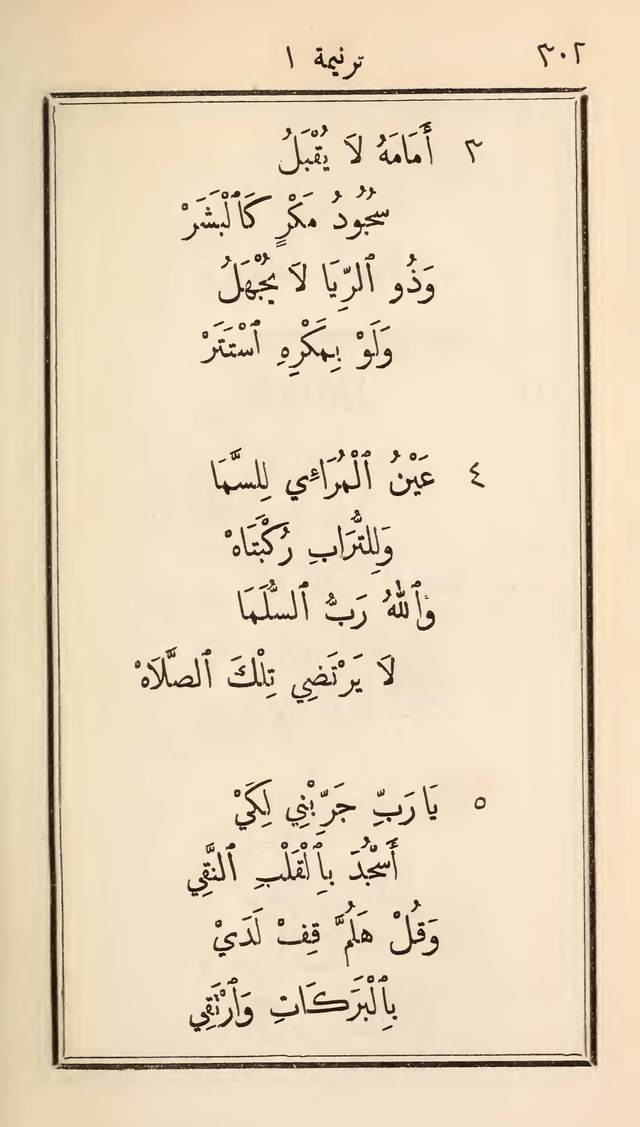 ٣٠٢ ترنيمة ١
٣ أَمَامَهُ لَا يُقْبَلُ
سُجُودُ مَكْرٍ كَٱلْبَشَرْ
وَذُو ٱلرِّيَا لَا يُجْهَلُ
وَلَوْ بِمَكْرِهِ ٱسْتَتَرْ
٤ عَيْنُ ٱلْمُرَائِي لِلسَّمَا
وَلِلتُّرَابِ رُكْبَتَاهْ
وَٱللهُ رَبُّ ٱلسُّلَمَا
لَا يَرْتَضِي تِلْكَ ٱلصَّلَاهْ
٥ يَا رَبِّ جَرِّبْنِي لِكَيْ
أَسْجُدَ بِٱلْقَلْبِ ٱلنَّقِي
وَقُلْ هَلُمَّ قِفْ لَدَيْ
بِٱلْبَرَكَاتِ وَٱرْتَقِي